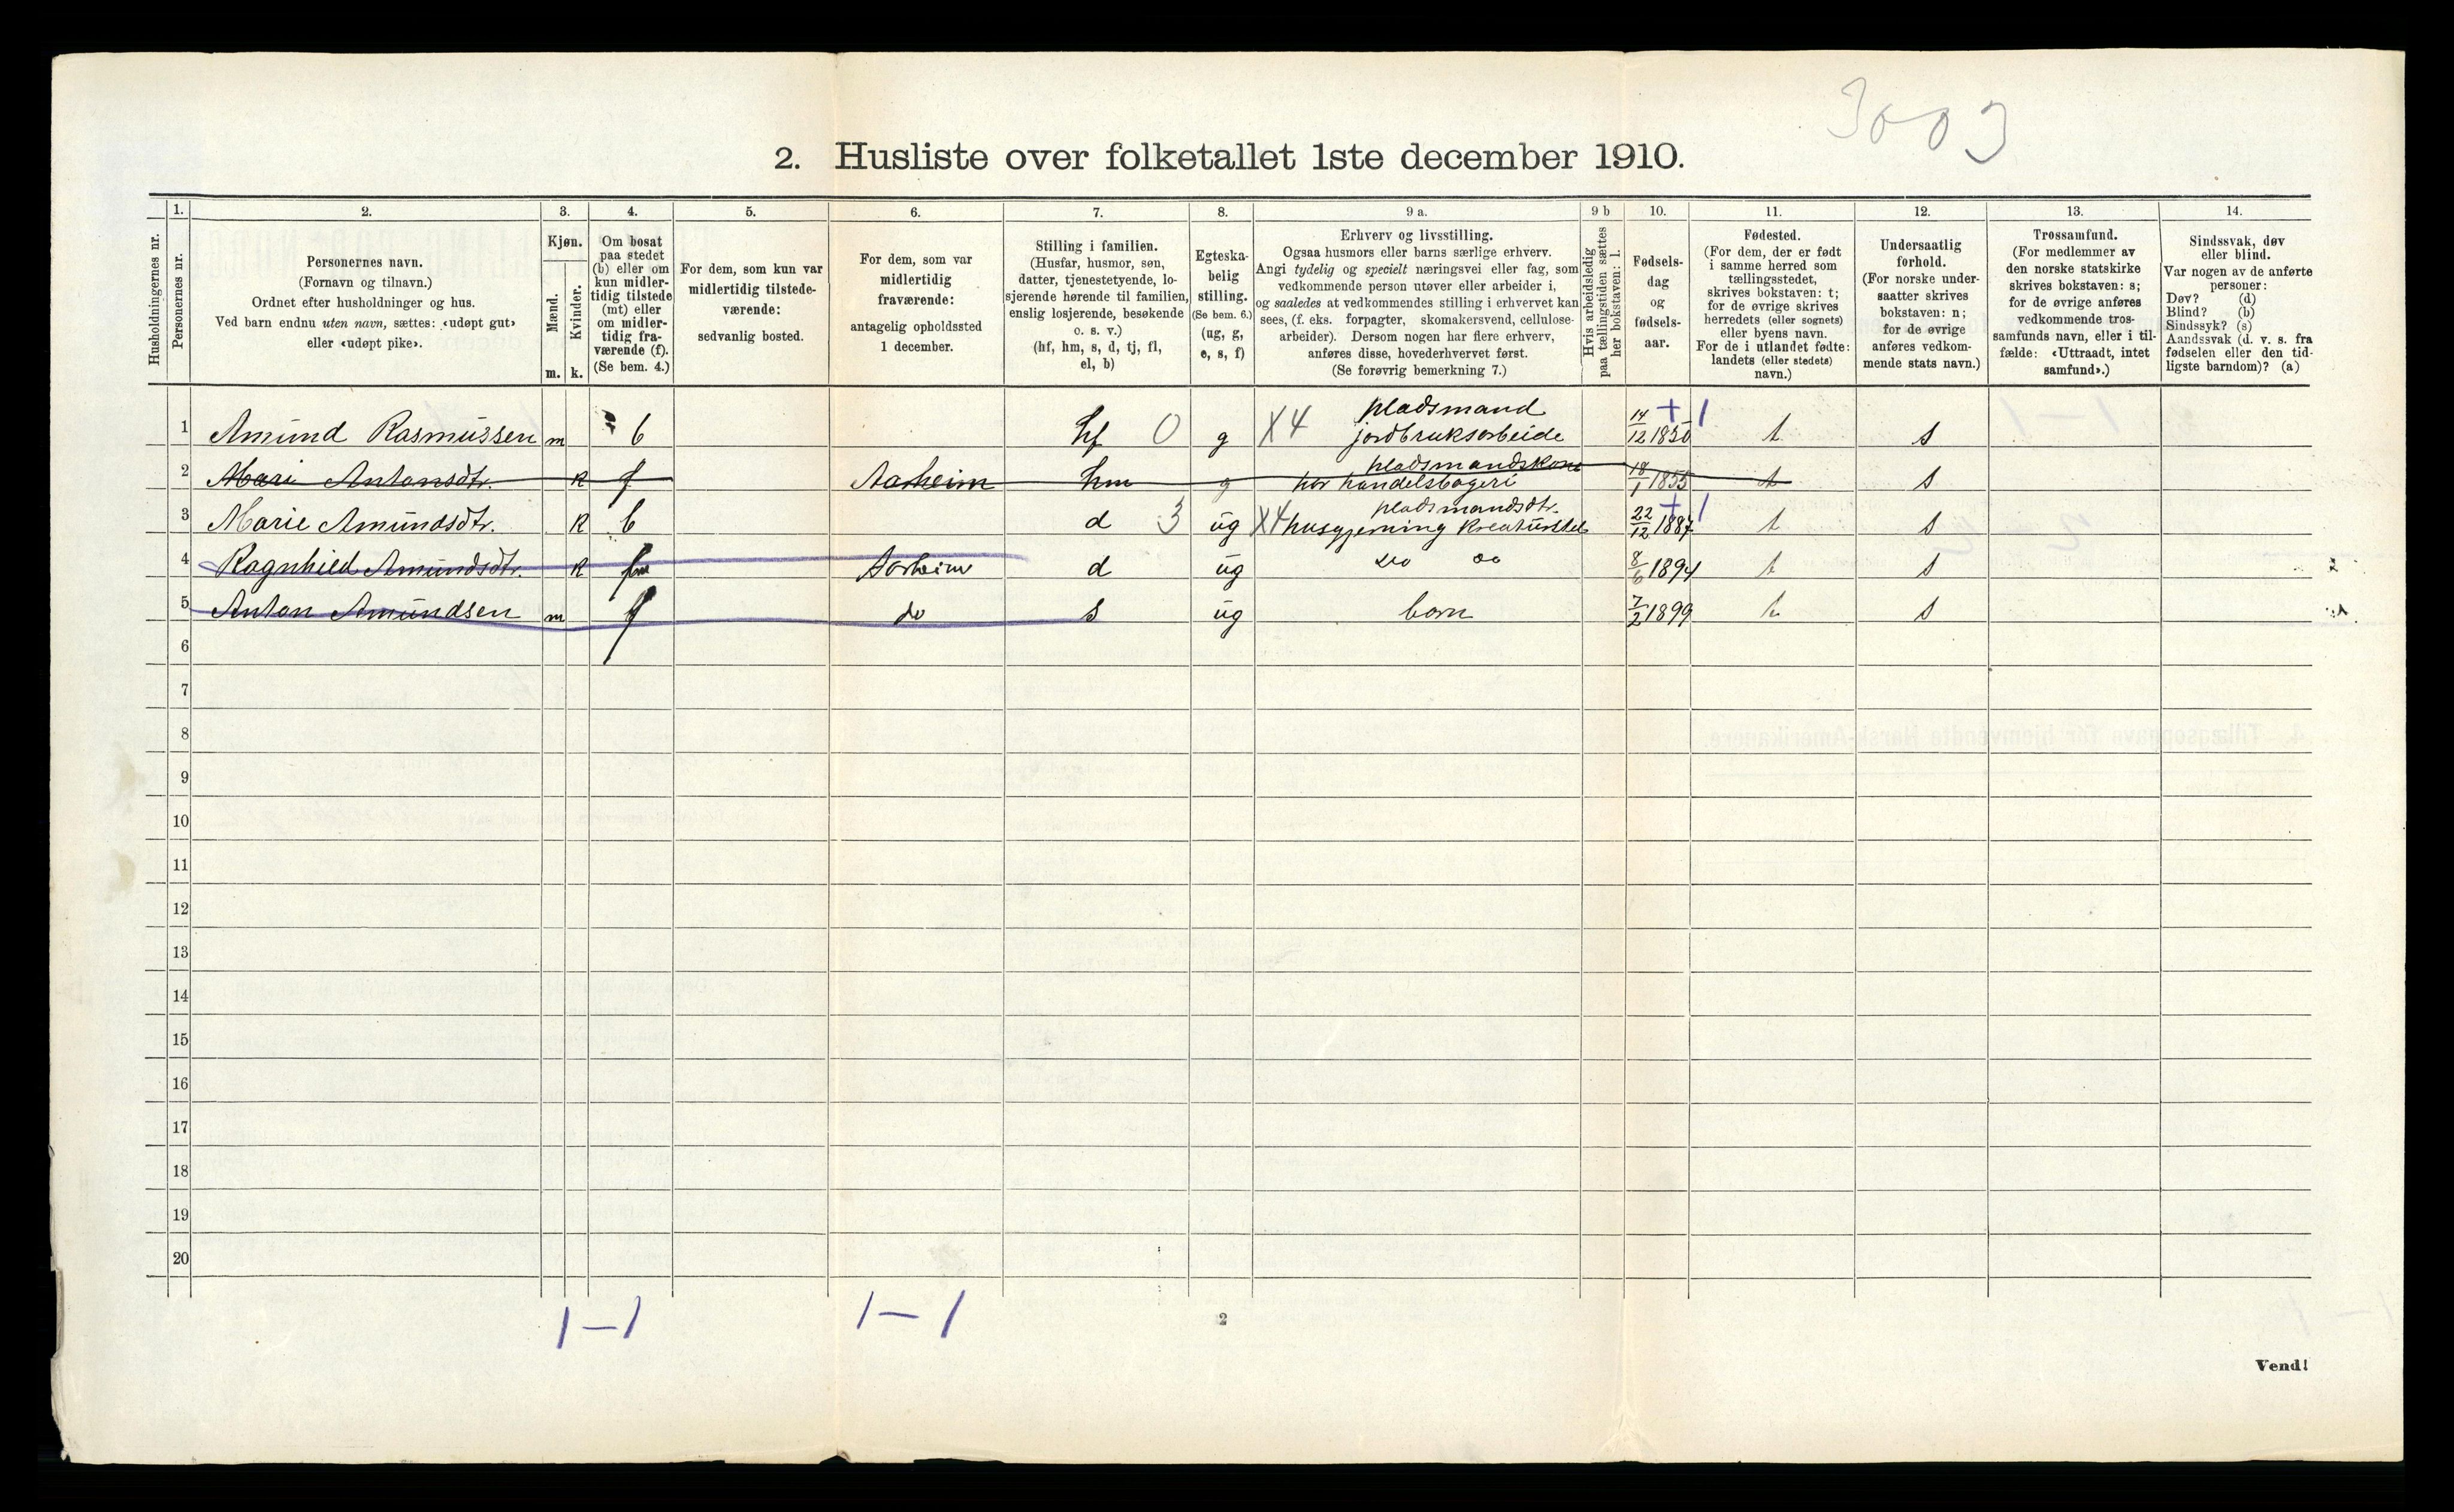 3003
2. Husliste over folketallet 1ste december 1910.
Husholdningernes nr.
1.
Personernes nr.
2.
Personernes navn.
(Fornavn og tilnavn.)
Ordnet efter husholdninger og hus.
Ved barn endnu uten navn, sættes: «udøpt gut»
eller «udøpt pike».
3.
Kjøn.
Mænd.
Kvinder.
m. k.
4.
Om bosat
paa stedet
(b) eller om
kun midler-
tidig tilstede
(mt) eller
om midler-
tidig fra-
værende (f).
(Se bem. 4.)
5.
For dem, som kun var
midlertidig tilstede-
værende:
sedvanlig bosted.
6.
For dem, som var
midlertidig
fraværende:
antagelig opholdssted
1 december.
7.
Stilling i familien.
(Husfar, husmor, søn,
datter, tjenestetyende, lo-
sjerende hørende til familien,
enslig losjerende, besøkende
o. s. v.)
(hf, hm, s, d, tj, fl,
el, b)
8.
Egteska-
belig
stilling.
(Se bem. 6.)
(ug, g,
e, s, f)
9 a.
Erhverv og livsstilling.
Ogsaa husmors eller barns særlige erhverv.
Angi tydelig og specielt næringsvei eller fag, som
vedkommende person utøver eller arbeider i,
og saaledes at vedkommendes stilling i erhvervet kan
sees, (f. eks. forpagter, skomakersvend, cellulose-
arbeider). Dersom nogen har flere erhverv,
anføres disse, hovederhvervet først.
(Se forøvrig bemerkning 7.)
9 b
Hvis arbeidsledig
paa tællingstiden sættes
her bokstaven: l.
10.
Fødsels-
dag
og
fødsels-
aar.
11.
Fødested.
(For dem, der er født
i samme herred som
tællingsstedet,
skrives bokstaven: t;
for de øvrige skrives
herredets (eller sognets)
eller byens navn.
For de i utlandet fødte:
landets (eller stedets)
navn.)
12.
Undersaatlig
forhold.
(For norske under-
saatter skrives
bokstaven: n;
for de øvrige
anføres vedkom-
mende stats navn.)
13.
Trossamfund.
(For medlemmer av
den norske statskirke
skrives bokstaven: s;
for de øvrige anføres
vedkommende tros-
samfunds navn, eller i til-
fælde: «Uttraadt, intet
samfund».)
14.
Sindssvak, døv
eller blind.
Var nogen av de anførte
personer:
Døv? (d)
Blind? (b)
Sindssyk? (s)
Aandssvak (d. v. s. fra
fødselen eller den tid-
ligste barndom)? (a)
1 Amund Rasmussen m b hf 0 g X4 pladsmand jordbruksarbeide 14/12 1850 + 1 t s
2 Mari Antonsdtr. k f Aarheim hm g pladsmandskone har handelsbageri 18/1 1855 t s
3 Marie Amundsdtr. k b d 3 ug X4 pladsmandsdtr. husgjerning kreaturstel 22/12 1887 + 1 t s
4 Ragnhild Amundsdtr. k f Aarheim d ug do do 8/6 1894 t s
5 Anton Amundsen m f do s ug barn 7/2 1899 t s
6
7
8
9
10
11
12
13
14
15
16
17
18
19
20
1 — 1
1 — 1
2
Vend!